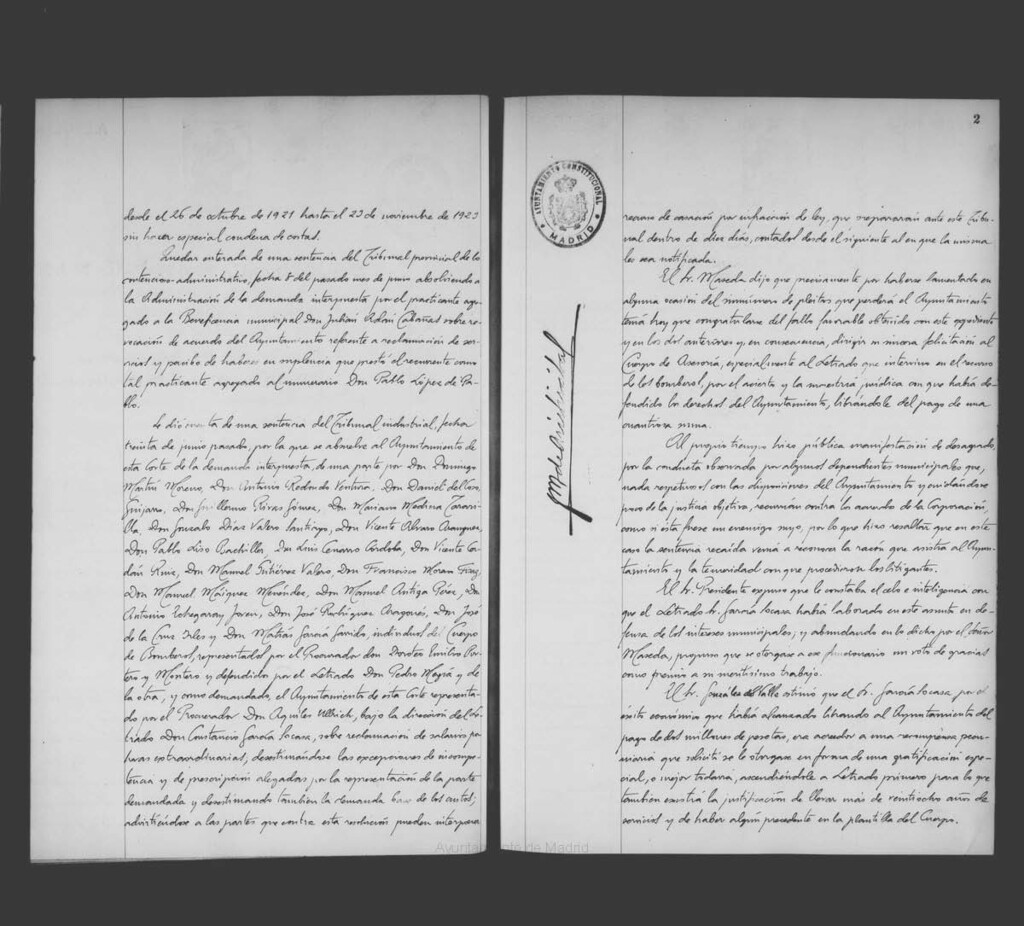 desde el 26 de octubre de 1921 hasta el 23 de noviembre de 1923
sin hacer especial condena de costas.
Quedar enterada de una sentencia del Tribunal provincial de lo
contencioso-administrativo, fecha 8 del pasado mes de junio absolviendo
a la Administración de la demanda interpuesta por el practicante agre-
gado a la Beneficencia municipal Don Julián Adán Cabañas sobre re-
vocación de acuerdo del Ayuntamiento referente a reclamación de ser-
vicios y percibo de haberes en
tal practicante agregado al numerario Don Pablo López de Pa-
blo.
Lo de una sentencia del Tribunal industrial, fecha
treinta de junio pasado, por la que se absuelve al Ayuntamiento de
esta Corte de la demanda interpuesta, de una parte por Don Domingo
Martín Moreno, Don Antonio Redondo Ventura, Don Daniel del Caso
Guijarro, Don Guillermo Rivas Gómez, Don Mariano Medina
Don Gonzalo Díaz Valero Santiago, Don Vicente Álvaro Aranguez,
Don Pablo Liso Bachiller, Don Luis Cenarro Córdoba, Don Vicente
Ruiz, Don Manuel Gutiérrez Valero, Don Francisco Morán
Don Manuel Maíquez Menéndez, Don Manuel Antiga Pérez, Don
Antonio Echegaray Joven, Don José Rodríguez Aragonés, Don José
de la Cruz Isles y Don Matías García Garrido, individuos del Cuerpo
de Bomberos, representados por el Procurador don Doroteo Emilio
y Montero y defendidos por el Letrado Don Pedro Mayá y de
la otra, y como demandado, el Ayuntamiento de esta Corte representa-
do por el Procurador Don Aquiles Ullrich, bajo la dirección del Le-
trado Don Constancio García Socasa, sobre reclamación de salarios por
horas extraordinarias, desestimándose las excepciones de incompe-
tencia y de prescripción alegadas por la representación de la parte
demandada y desestimando también la demanda base de los autos;
advirtiéndose a las partes que contra esta resolución pueden interponer
2
AYUNTAMIENTO CONSTITUCIONAL
MADRID
recurso de casación por infracción de ley, que prepararán ante este Tribu-
nal dentro de diez días, contados desde el siguiente al en que la misma
les sea notificada.
El Sr. Maseda dijo que precisamente por haberse lamentado en
alguna ocasión del sinnúmero de pleitos que perderá el Ayuntamiento
tenía hoy que congratularse del fallo favorable obtenido con este expediente
y en los dos anteriores y en consecuencia, dirigir su sincera felicitación al
Cuerpo de Asesoría, especialmente al Letrado que intervino en el recurso
de los bomberos, por el acierto y la maestría jurídica con que había de-
fendido los derechos del Ayuntamiento, librándole del pago de una
cuantiosa suma.
Al propio tiempo hizo pública manifestación de desagrado,
por la conducta observada por algunos dependientes municipales que,
nada respetuosos con las disposiciones del Ayuntamiento y cuidándose
poco de la justicia objetiva, recurrían contra los acuerdos de la Corporación,
como si ésta fuese un enemigo suyo, por lo que hizo resaltar que en este
caso la sentencia recaída venía a reconocer la razón que asistía al Ayun-
tamiento y la temeridad con que procedieron los litigantes.
El Sr. Presidente expuso que le constaba el celo e inteligencia con
que el Letrado Sr. García Socasa había laborado en este asunto en de-
fensa de los intereses municipales; y abundando en lo dicho por el señor
Maseda, propuso que se otorgase a ese funcionario un voto de gracias
como premio a su meritísimo trabajo.
El Sr. González del Valle estimó que el Sr. García Socasa, por el
éxito económico que había alcanzado librando al Ayuntamiento del
pago de dos millones de pesetas, era acreedor a una recompensa pecu-
niaria que solicitó se le otorgase en forma de una gratificación espe-
cial, o mejor todavía, ascendiéndole a Letrado primero para lo que
también existía la justificación de llevar más de veintiocho años de
servicios y de haber algún precedente en la plantilla del Cuerpo.
Ayuntamiento de Madrid